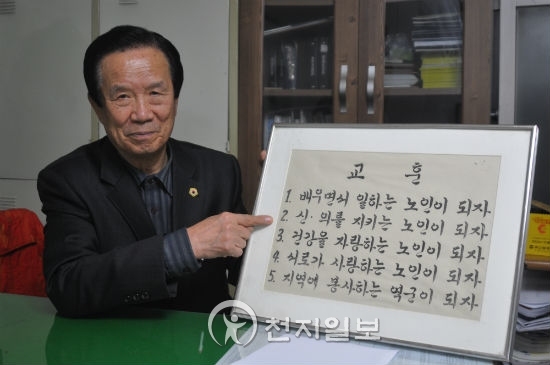 교 훈
1. 배우면서 일하는 노인이 되자
2. 신·의를 지키는 노인이 되자
3. 건강을 자랑하는 노인이 되자
4. 서로가 사랑하는 노인이 되자
5. 지역에 봉사하는 역군이 되자
천지일보